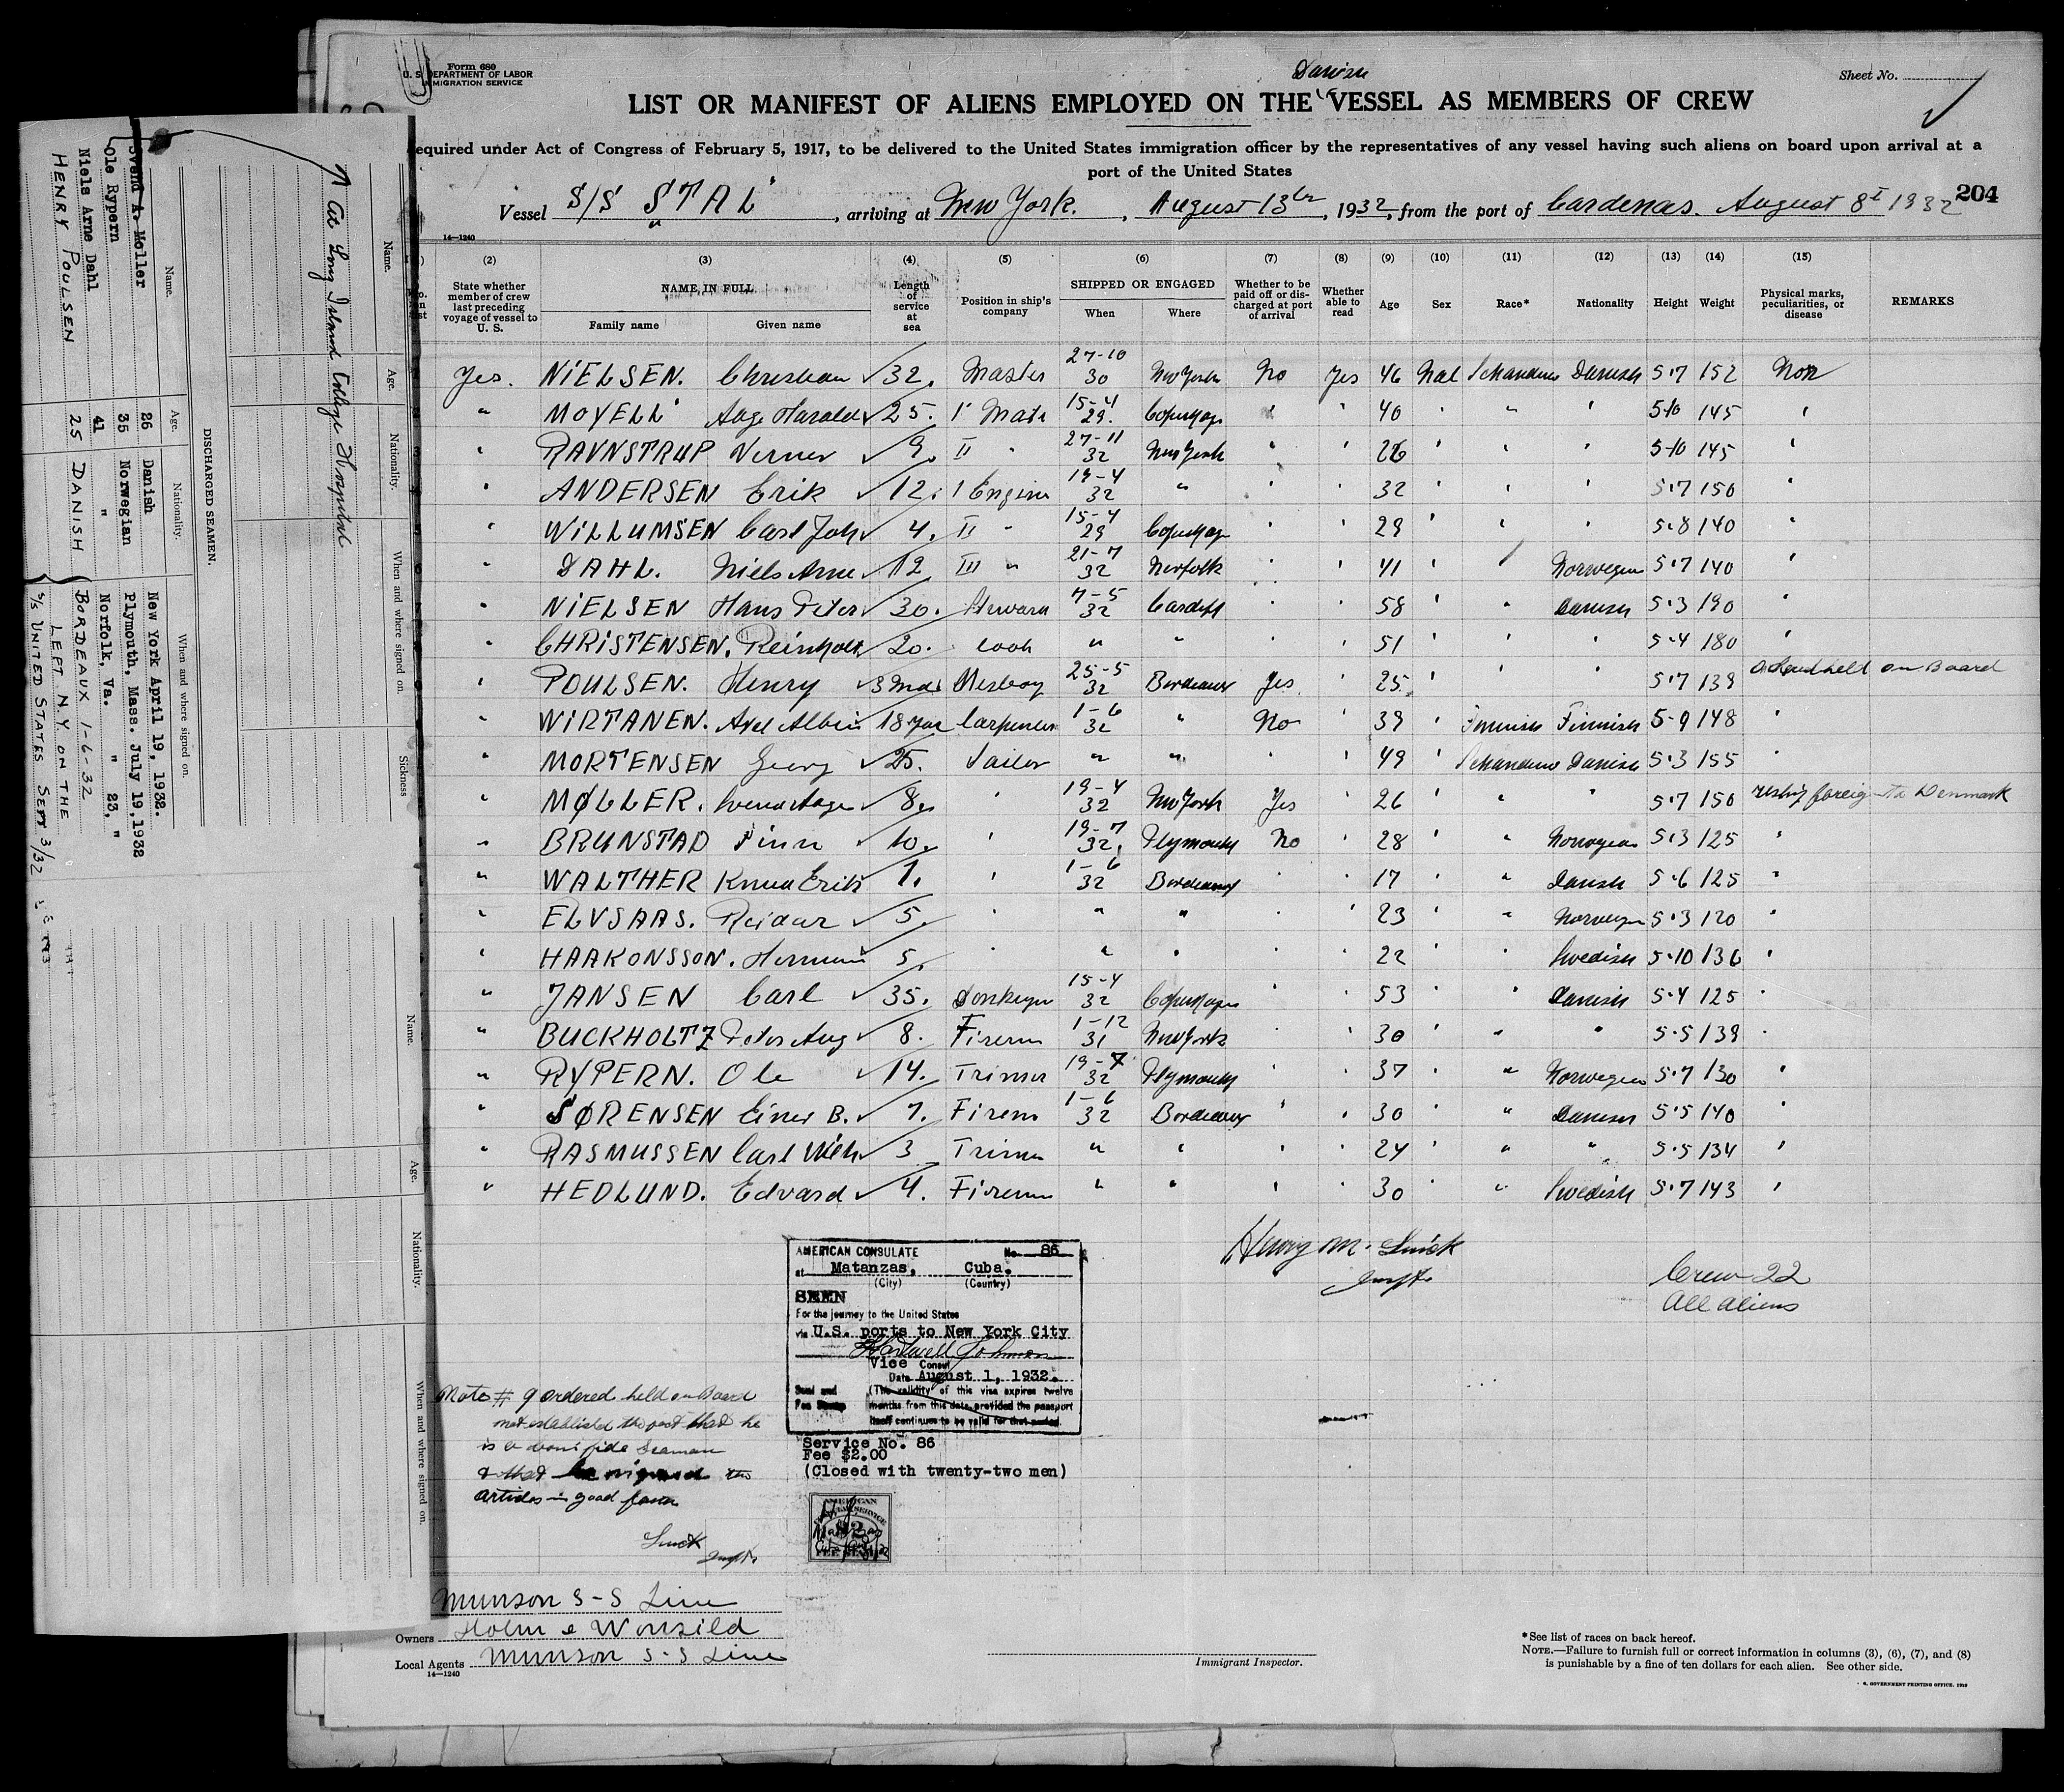 Form 680
U. S. DEPARTMENT OF LABOR
IMMIGRATION SERVICE
Sheet No.
Danish
LIST OR MANIFEST OF ALIENS EMPLOYED ON THE VESSEL AS MEMBERS OF CREW
equired under Act of Congress of February 5, 1917, to be delivered to the United States immigration officer by the representatives of any vessel having such aliens on board upon arrival at a
port of the United States
Vessel S/S STAL, arriving at New York., August 13th, 1932, from the port of Cardenas. August 8t 1932 204
14—1240
(2) (3) (4) (5) (6) (7) (8) (9) (10) (11) (12) (13) (14) (15)
State whether member of crew last preceding voyage of vessel to U. S.
NAME IN FULL
Family name Given name
Length of service at sea
Position in ship's company
SHIPPED OR ENGAGED
When Where
Whether to be paid off or discharged at port of arrival
Whether able to read
Age Sex Race* Nationality Height Weight
Physical marks, peculiarities, or disease
REMARKS
Yes. NIELSEN. Christian 32. Master 27-10 30 New York No Yes 46 Mal Danish 5·7 152 Non
" MOYELL Aage Harald 25. 1' Mate 15-4 29. Copenhagn 40 5·10 145
" RAVNSTRUP Verner 9. II " 27-11 32 New York 26 5-10 145
" ANDERSEN Erik 12. 1 Engin 19-4 32 " 32 5·7 150
" WILLUMSEN Carl Joh 4. II " 15-4 29 Copenhagn 29 5·8 140
" DAHL. Niels Arne 12 III " 21-7 32 Norfolk 41 Norwegen 5·7 140
" NIELSEN Hans Peter 30. Steward 7-5 32 Cardiff 58 " Danish 5·3 190
" CHRISTENSEN. Reinholt 20. Cook " " 51 5·4 180
" POULSEN. Henry 3 md Mesboy 25-5 32 Bordeaux Yes 25 5·7 139 held on Board
" WIRTANEN. Axel Albin 18 year Carpenter 1-6 32 " No 39 Finnish Finnish 5-9 148
" MORTENSEN Georg 25. Sailor " " 49 Danish 5·3 155
" MØLLER. Svend Aage 8. 19-4 32 New York Yes 26 " " 5·7 150 reship foreign to Denmark
" BRUNSTAD Finn 10. 19-7 32. Plymouth No 28 " Norwegian 5·3 125
" WALTHER Knud Erik 1. 1-6 32 Bordeaux 17 " Danish 5·6 125
" ELVSAAS. Reidar 5. " " 23 " Norwegen 5·3 120
" HAAKONSSON. Herman 5. " " 22 Swedish 5·10 136
" JANSEN Carl 35. Donkeyn 15-4 32 Copenhagn 53 " Danish 5·4 125
" BUCKHOLTZ Peter Aug 8. Firem 1-12 31 New York 30 " " 5·5 139
" RYPERN. Ole 14. Trimer 19-7 32 Plymouth 37 " Norwegen 5·7 130
" SØRENSEN Einer B. 7. Firem 1-6 32 Bordeaux 30 " Danish 5·5 140
" RASMUSSEN Carl Wilh 3 Trimer " " 24 " " 5·5 134
" HEDLUND. Edvard 4. Firem " " 30 " Swedish 5·7 143
Crew 22
All aliens
AMERICAN CONSULATE No. 86
at Matanzas, Cuba.
(City) (Country)
SEEN
For the journey to the United States
via U.S. ports to New York City
Hartwell Johnson
Vice Consul
Date August 1, 1932.
Seal and Fee Stamp
(The validity of this visa expires twelve
months from this date, provided the passport
itself continues to be valid for that period.
Service No. 86
Fee $2.00
(Closed with twenty-two men)
Note # 9 ordered held on Board
not established the fact that he
is a bona fide seaman
& that he signed the
articles in good
Munson S-S Line
Owners Holm & Wonsild
Local Agents Munson S-S Line
14—1240
Immigrant Inspector.
*See list of races on back hereof.
NOTE.—Failure to furnish full or correct information in columns (3), (6), (7), and (8)
is punishable by a fine of ten dollars for each alien. See other side.
GOVERNMENT PRINTING OFFICE
Name. Age. Nationality. When and where signed on. Sickness
At Long Island College Hospital
DISCHARGED SEAMEN.
Name. Age. Nationality. When and where signed on.
Svend A. Moller 26 Danish New York April 19, 1932.
Ole Rypern 35 Norwegian Plymouth, Mass. July 19, 1932
Niels Arne Dahl 41 " Norfolk, Va. " 23, "
HENRY POULSEN 25 DANISH BORDEAUX 1-6-32
LEFT N.Y. ON THE
S/S UNITED STATES SEPT 3/32
Name. Age. Nationality. When and where signed on.